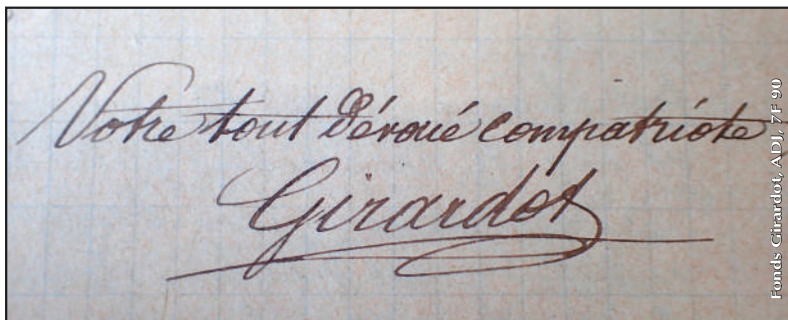 Votre tout dévoué compatriote
Girardot
Fonds Girardot, ADJ, 7F 90